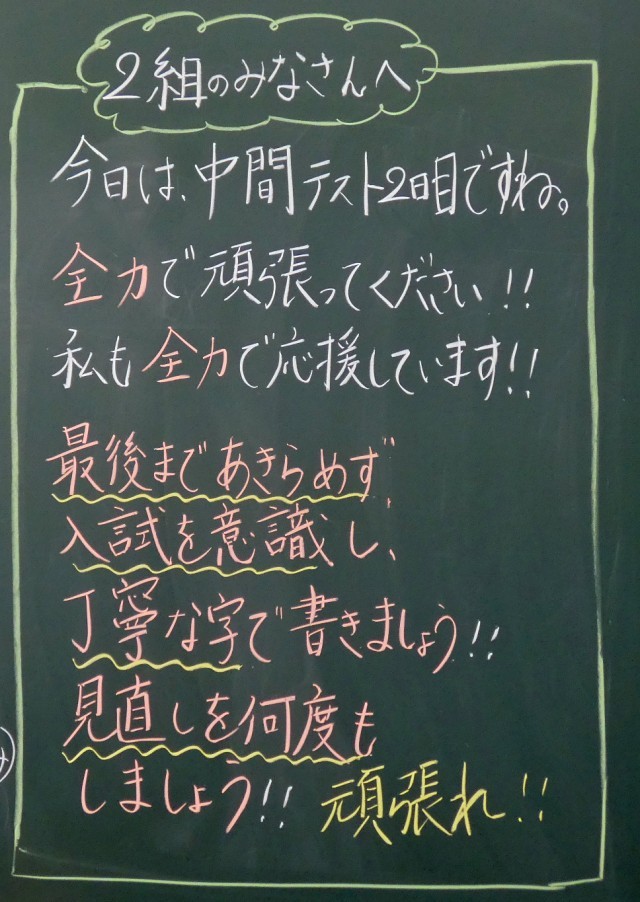 2組のみなさんへ
今日は、中間テスト2日目ですね。
全力で頑張ってください!!
私も全力で応援しています!!
最後まであきらめず、
入試を意識し、
丁寧な字で書きましょう!!
見直しを何度も
しましょう!! 頑張れ!!